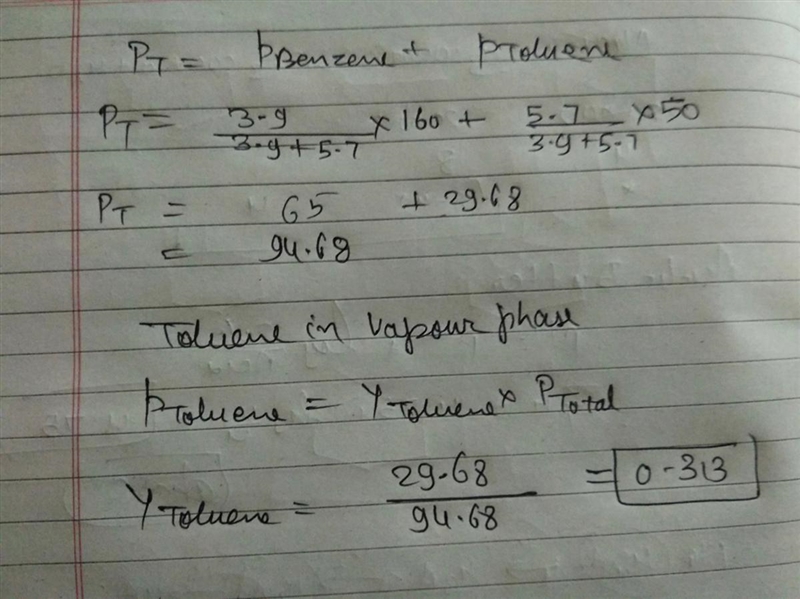 PT = PBenzene + PToluene
PT = 3.9 / 3.9+5.7 × 160 + 5.7 / 3.9+5.7 × 50
PT = 65 + 29.68
= 94.68
Toluene in Vapour phase
PToluene = YToluene × PTotal
YToluene = 29.68 / 94.68 = 0.313